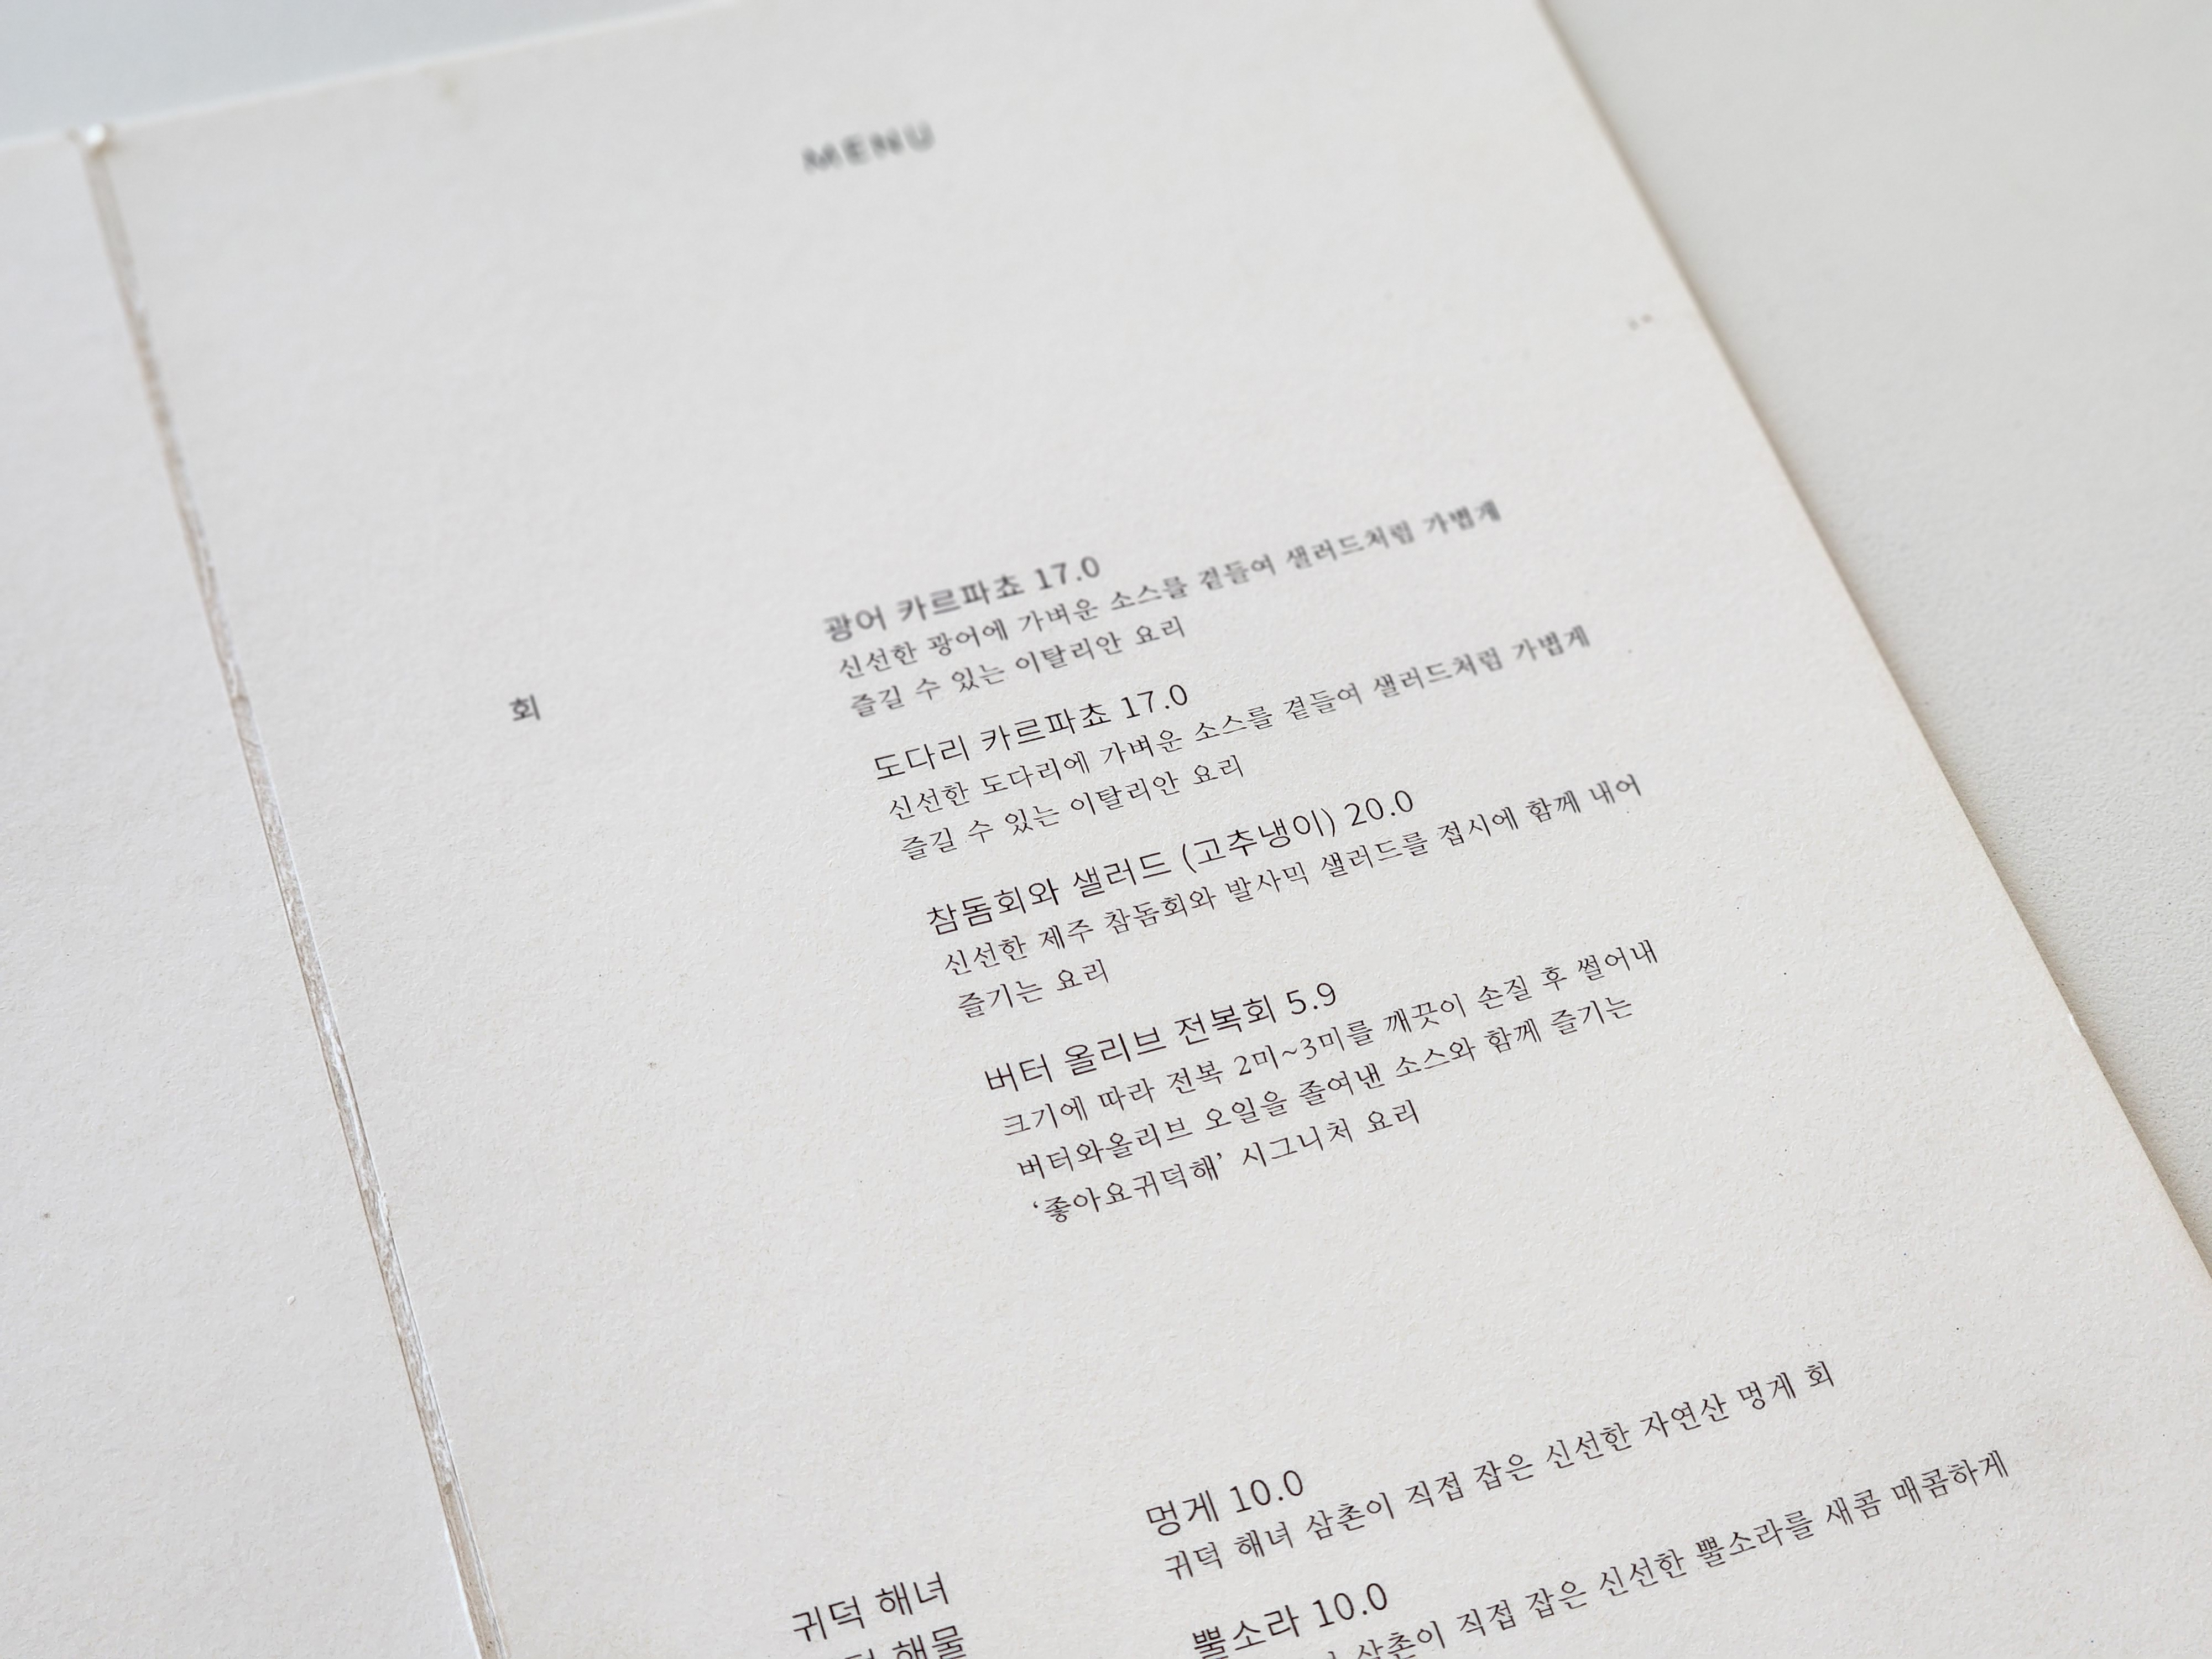 MENU
회
광어 카르파쵸 17.0
신선한 광어에 가벼운 소스를 곁들여 샐러드처럼 가볍게
즐길 수 있는 이탈리안 요리
도다리 카르파쵸 17.0
신선한 도다리에 가벼운 소스를 곁들여 샐러드처럼 가볍게
즐길 수 있는 이탈리안 요리
참돔회와 샐러드 (고추냉이) 20.0
신선한 제주 참돔회와 발사믹 샐러드를 접시에 함께 내어
즐기는 요리
버터 올리브 전복회 5.9
크기에 따라 전복 2미~3미를 깨끗이 손질 후 썰어내
버터와올리브 오일을 졸여낸 소스와 함께 즐기는
‘좋아요귀덕해’ 시그니처 요리
귀덕 해녀
해물
멍게 10.0
귀덕 해녀 삼촌이 직접 잡은 신선한 자연산 멍게 회
뿔소라 10.0
삼촌이 직접 잡은 신선한 뿔소라를 새콤 매콤하게